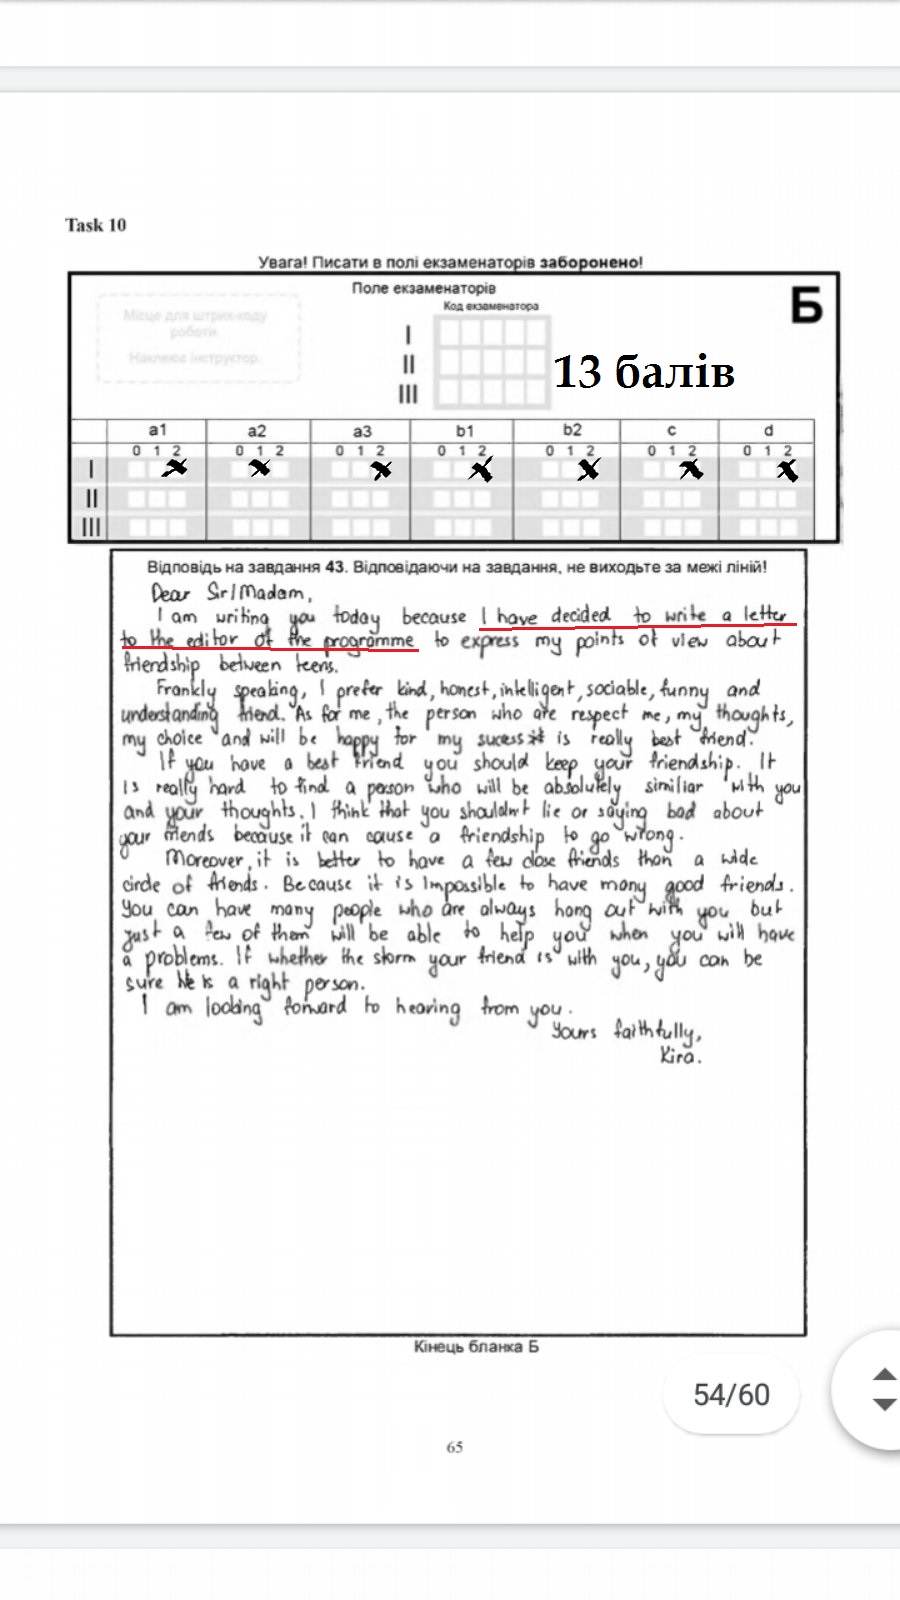 Task 10
Увага! Писати в полі екзаменаторів заборонено!
Поле екзаменаторів
Код екзаменатора
Б
Місце для штрих-коду
роботи.
Наклеює інструктор.
I
II
III
13 балів
a1 a2 a3 b1 b2 c d
0 1 2 0 1 2 0 1 2 0 1 2 0 1 2 0 1 2 0 1 2
I
II
III
Відповідь на завдання 43. Відповідаючи на завдання, не виходьте за межі ліній!
Dear Sir/Madam,
I am writing you today because I have decided to write a letter
to the editor of the programme to express my points of view about
friendship between teens.
Frankly speaking, I prefer kind, honest, intelligent, sociable, funny and
understanding friend. As for me, the person who are respect me, my thoughts,
my choice and will be happy for my sucess it is really best friend.
If you have a best friend you should keep your friendship. It
is really hard to find a person who will be absolutely similiar with you
and your thoughts. I think that you shouldn't lie or saying bad about
your friends because it can cause a friendship to go wrong.
Moreover, it is better to have a few close friends than a wide
circle of friends. Because it is impossible to have many good friends.
You can have many people who are always hang out with you but
just a few of them will be able to help you when you will have
a problems. If whether the storm your friend is with you, you can be
sure he is a right person.
I am looking forward to hearing from you.
Yours faithfully,
Kira.
Кінець бланка Б
54/60
65